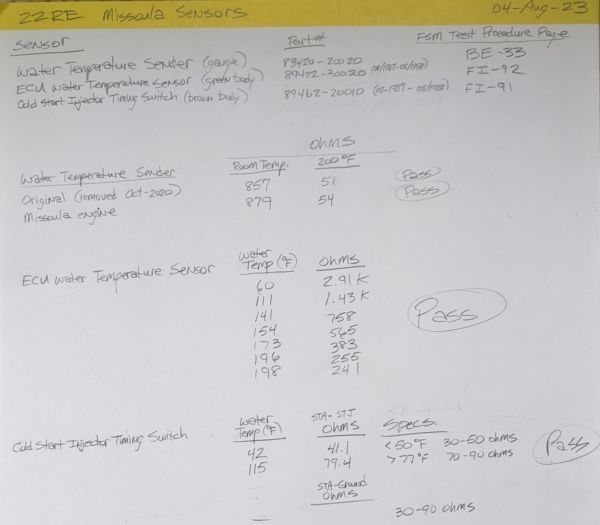 22RE Missoula Sensors 04-Aug-23
Sensor Part# FSM Test Procedure Page
Water Temperature Sender (gauge) 83420-20020 BE-33
ECU Water Temperature Sensor (green body) 89422-30020 FI-92
Cold Start Injector Timing Switch (brown body) 89462-20010 FI-91
Ohms
Water Temperature Sender Room Temp. 200°F
Original (removed Oct-2020) 857 51 Pass
Missoula engine 879 54 Pass
ECU Water Temperature Sensor Water Temp (°F) Ohms
60 2.91K
111 1.43K
141 758
154 565
173 383
196 255
198 241
Pass
Cold Start Injector Timing Switch Water Temp (°F) STA-STJ Ohms Specs.
42 41.1 <50°F 30-50 ohms
115 79.4 >77°F 70-90 ohms
Pass
STA-Ground
Ohms
30-90 ohms